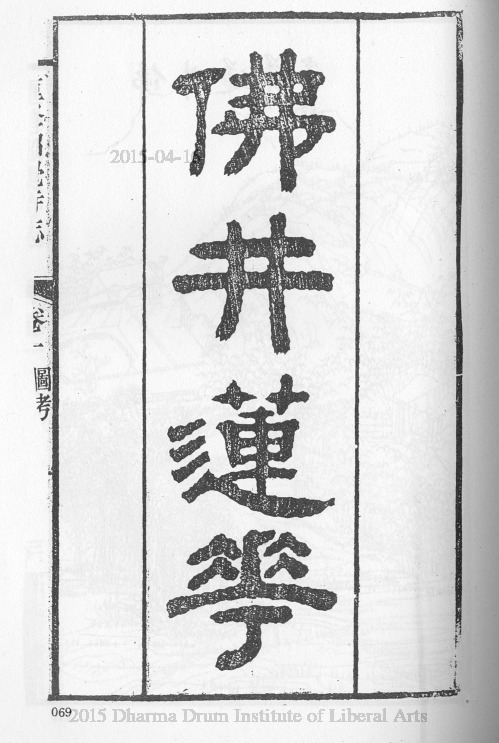 佛井蓮花
卷一
圖考
069
2015-04-16
2015 Dharma Drum Institute of Liberal Arts